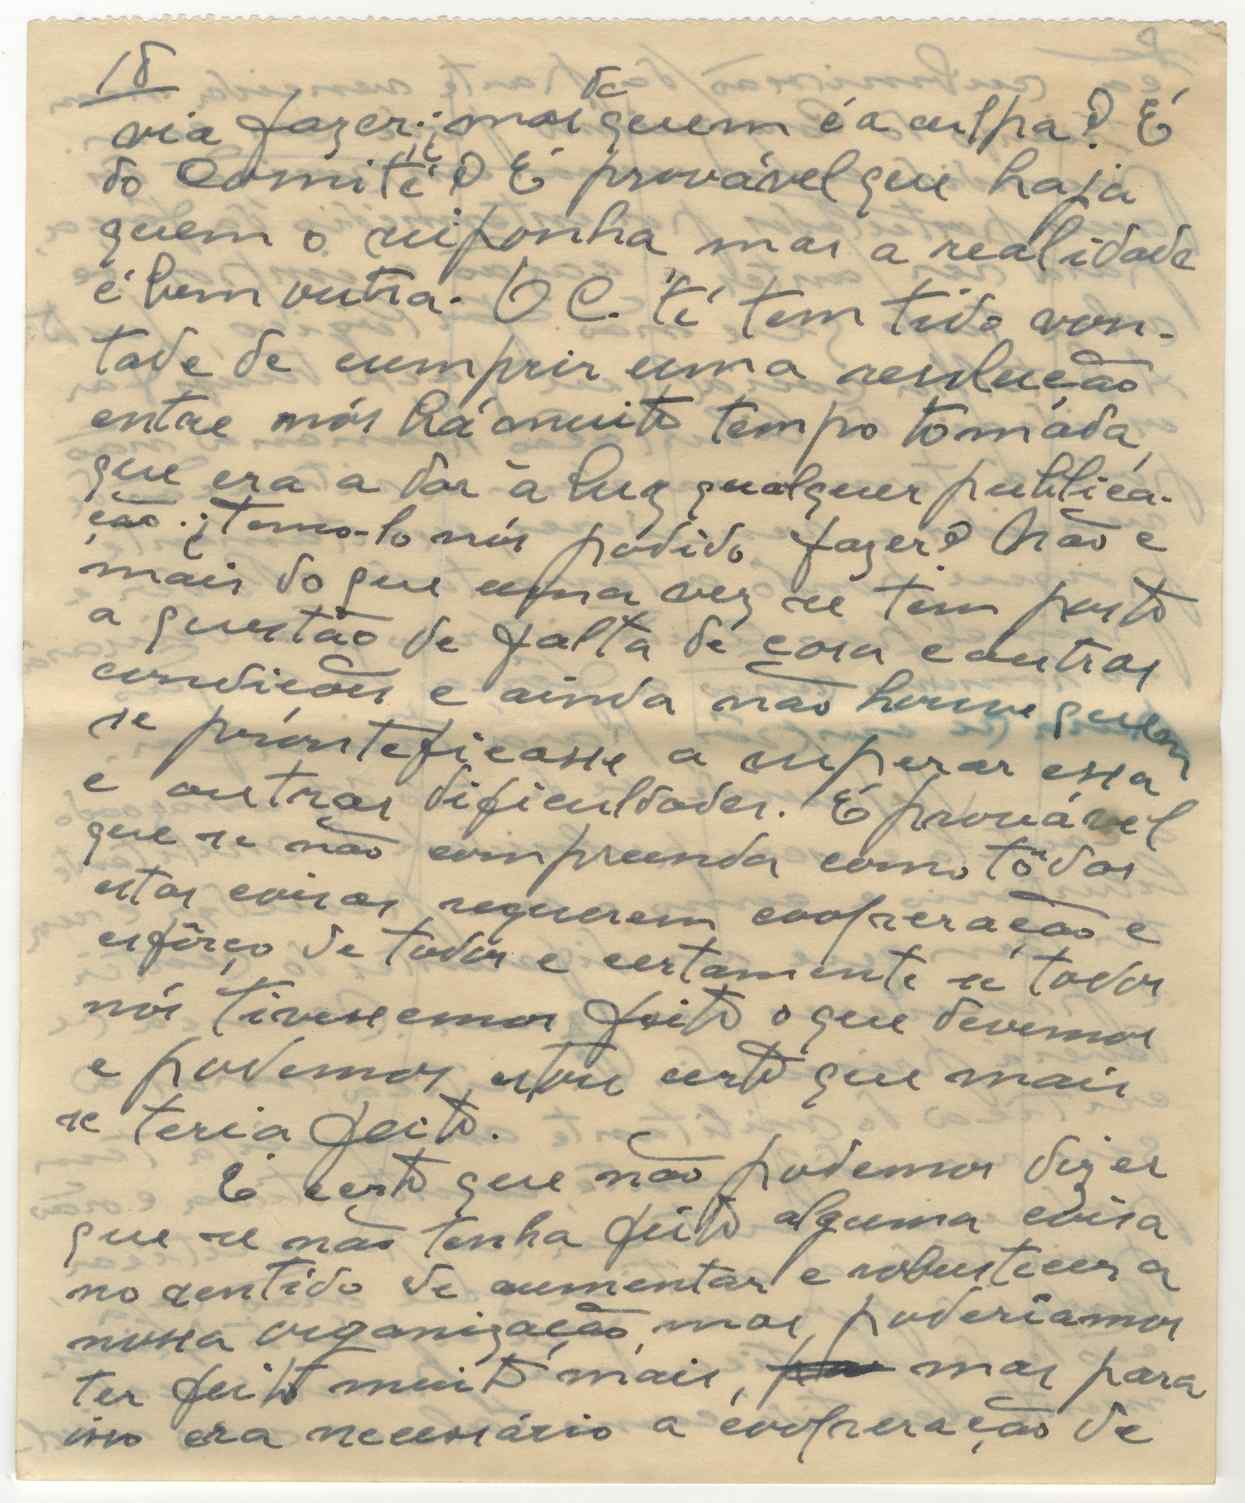 18
via fazer; ¿mas de quem é a culpa? É
do Comité? É provável que haja
quem o suponha mas a realidade
é bem outra. O C. té tem tido von-
tade de cumprir uma resolução
entre nós há muito tempo tomáda,
que era a dar à luz qualquer publica-
ção. ¿Temo-lo nós podido fazer? Não e
mais do que uma vez se tem posto
a questão de falta de casa e outras
condições e ainda não houve quem
se pronteficasse a superar essa
e outras dificuldades. É provável
que se não compreenda como tôdas
estas coisas requerem cooperação e
esfôrço de todos e certamente se todos
nós tivessemos feito o que devemos
e podemos, estou certo que mais
se teria feito.
É certo que não podemos dizer
que se não tenha feito alguma coisa
no sentido de aumentar e robustecer a
nossa organização, mas, poderiamos
ter feito muito mais, mas para
isso era necessário a cooperação de